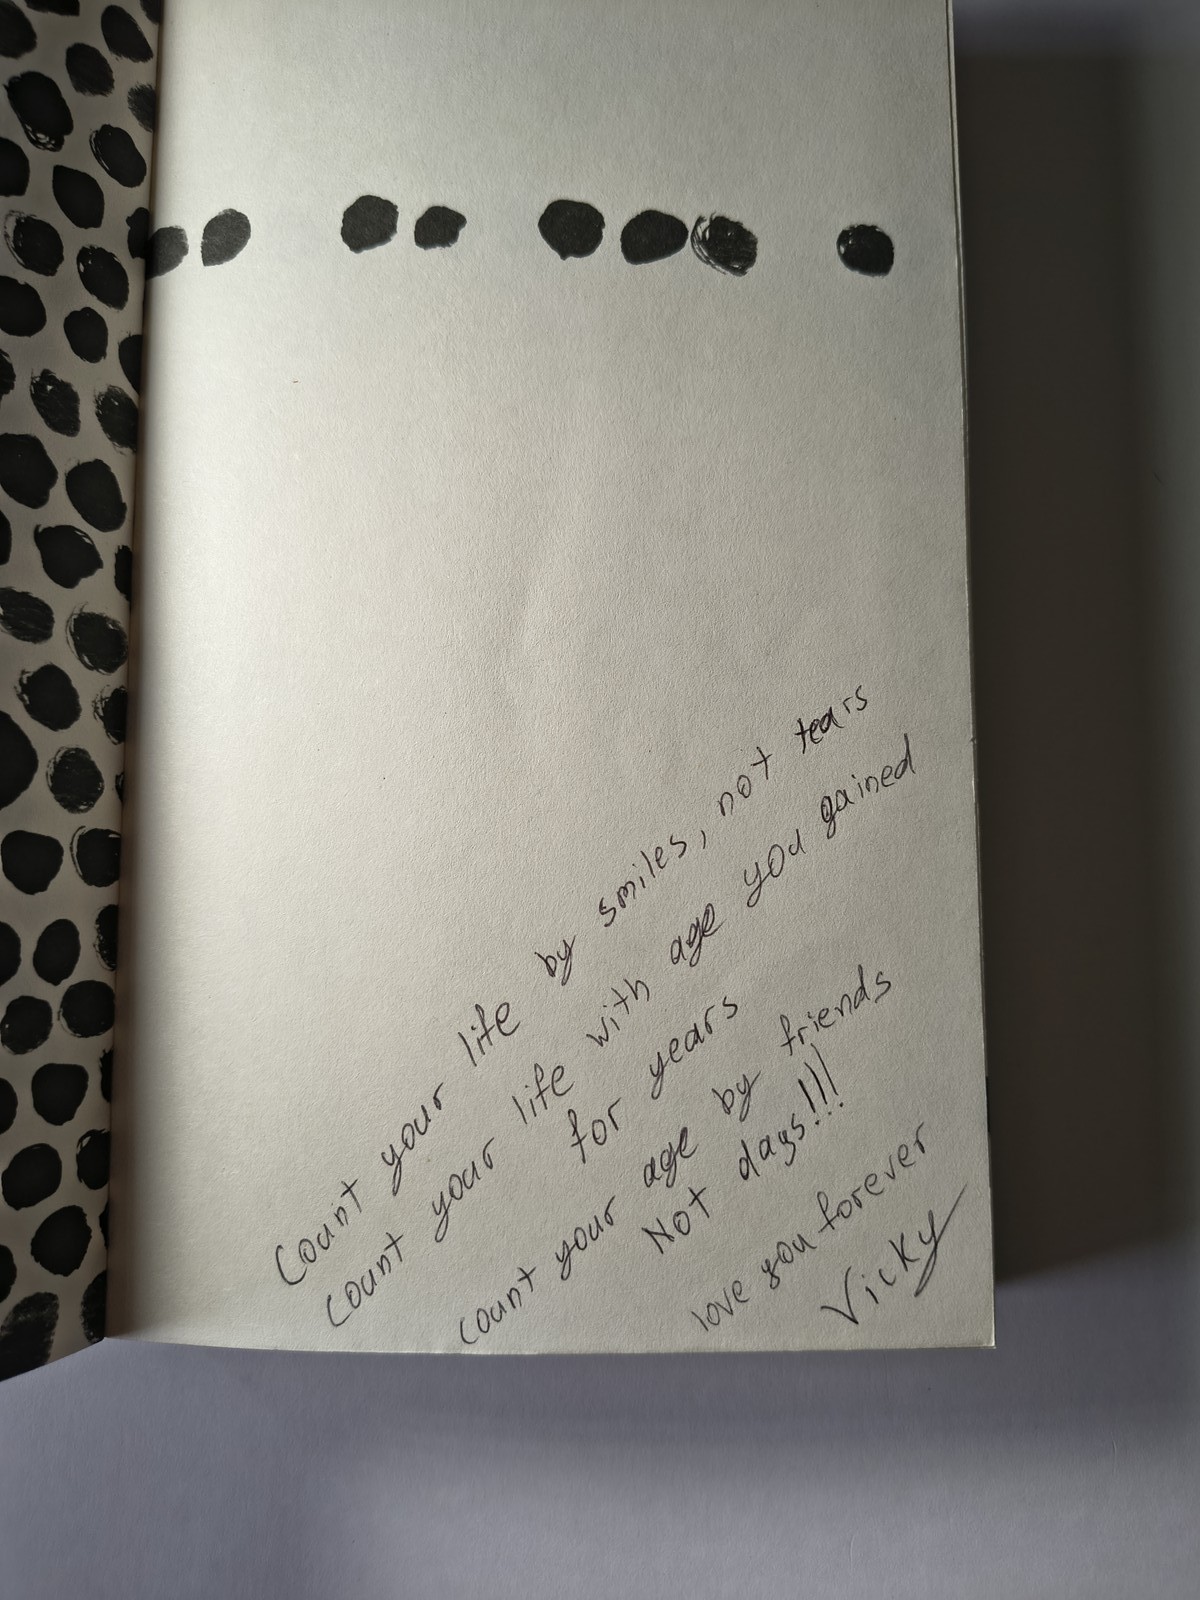 Count your life by smiles, not tears
count your life with age you gained
for years
count your age by friends
Not days!!!
love you forever
Vicky